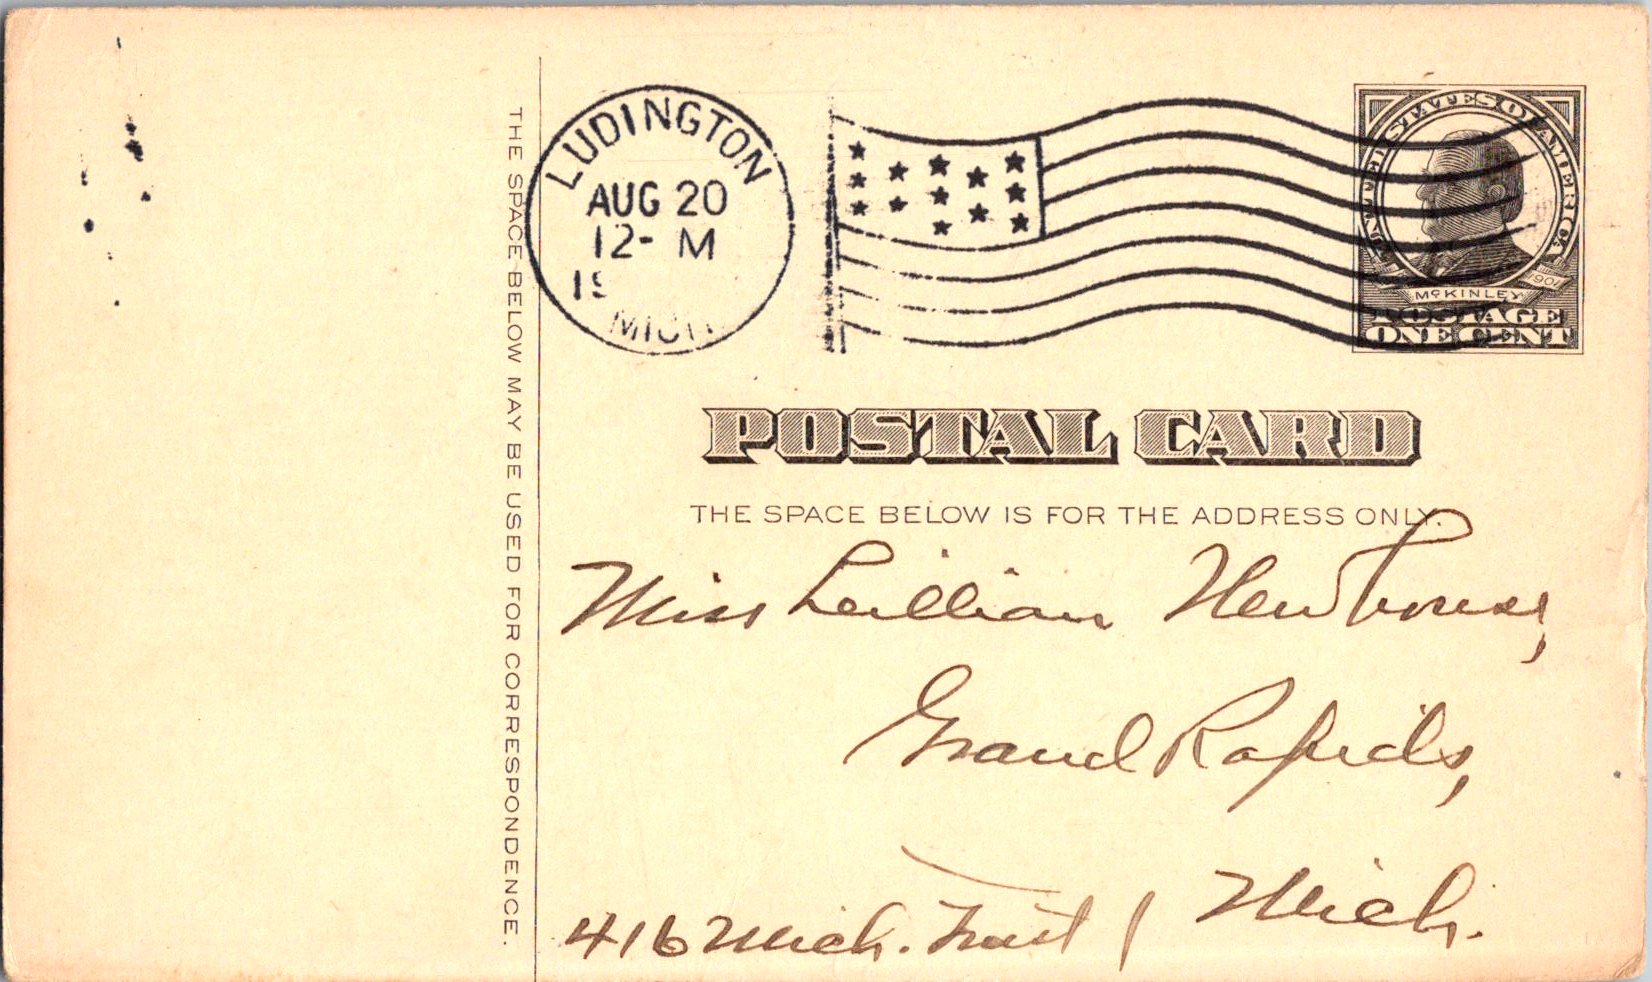 THE SPACE BELOW MAY BE USED FOR CORRESPONDENCE.
LUDINGTON
AUG 20
12- M
19
MICH
UNITED STATES OF AMERICA
McKINLEY
1901
POSTAGE
ONE CENT
POSTAL CARD
THE SPACE BELOW IS FOR THE ADDRESS ONLY.
Miss Lillian Newhouse,
Grand Rapids,
Mich.
416 Mich. Trust